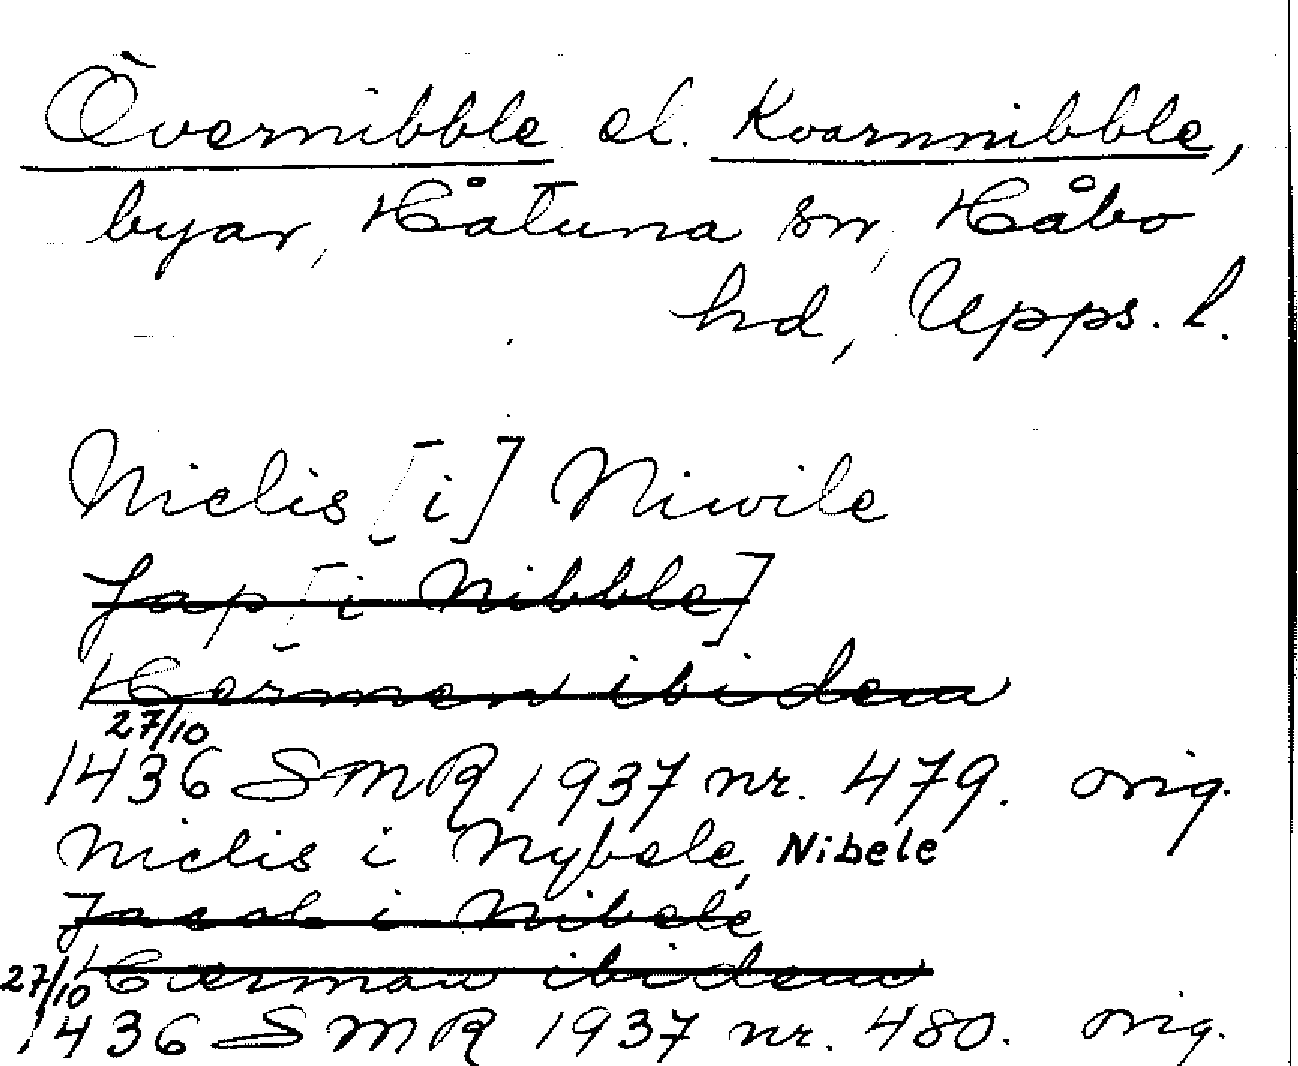 Övernibble el. Kvarnnibble,
byar, Håtuna sn, Håbo
hd, Upps. l.
Niclis [i] Niwile
Jap [i Nibble]
Herman ibidem
27/10
1436 SMR 1937 nr. 479. orig.
Niclis i Nybele, Nibele
Jacob i Nibele
Hærman ibidem
27/10
1436 SMR 1937 nr. 480. orig.